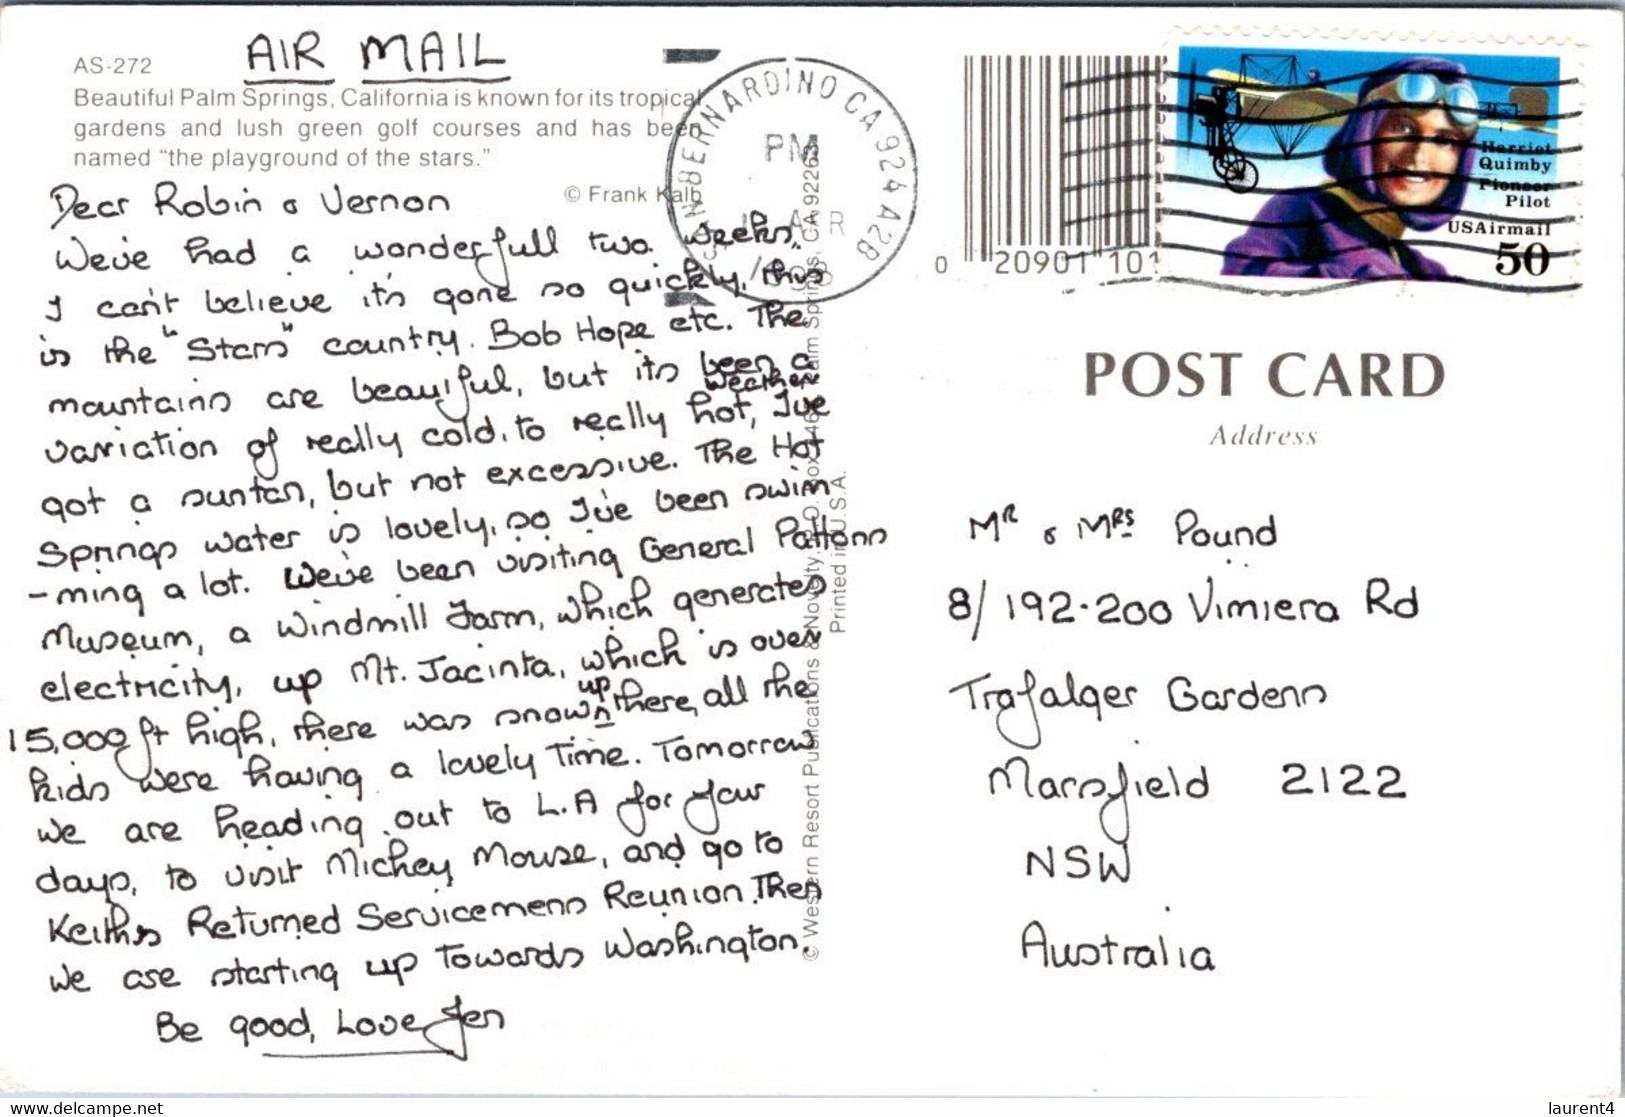 AIR MAIL
AS-272
Beautiful Palm Springs, California is known for its tropical
gardens and lush green golf courses and has been
named "the playground of the stars."
© Frank Kalb
Dear Robin & Vernon
We've had a wonderfull two weeks.
I can't believe it's gone so quickly, this
is the "Stars" country. Bob Hope etc. The
mountains are beautiful, but its been a
weather
variation of really cold, to really hot, I've
got a suntan, but not excessive. The Hot
Springs water is lovely, so I've been swim
-ming a lot. We've been visiting General Pattons
Museum, a Windmill Farm, which generates
electricity, up Mt. Jacinta, which is over
15,000 ft high, there was snow up there, all the
kids were having a lovely time. Tomorrow
we are heading out to L.A for four
days, to visit Mickey Mouse, and go to
Keiths Returned Servicemens Reunion. Then
we are starting up towards Washington.
Be good, Love Jen
© Western Resort Publications & Novelty, P.O. Box 46 Palm Springs, CA 92263
Printed in U.S.A.
SAN BERNARDINO CA 924 A2B
PM
APR
0 20901 101
Harriet
Quimby
Pioneer
Pilot
USAirmail
50
POST CARD
Address
Mr & Mrs Pound
8/192-200 Vimiera Rd
Trafalger Gardens
Marsfield 2122
NSW
Australia
www.delcampe.net
laurent4